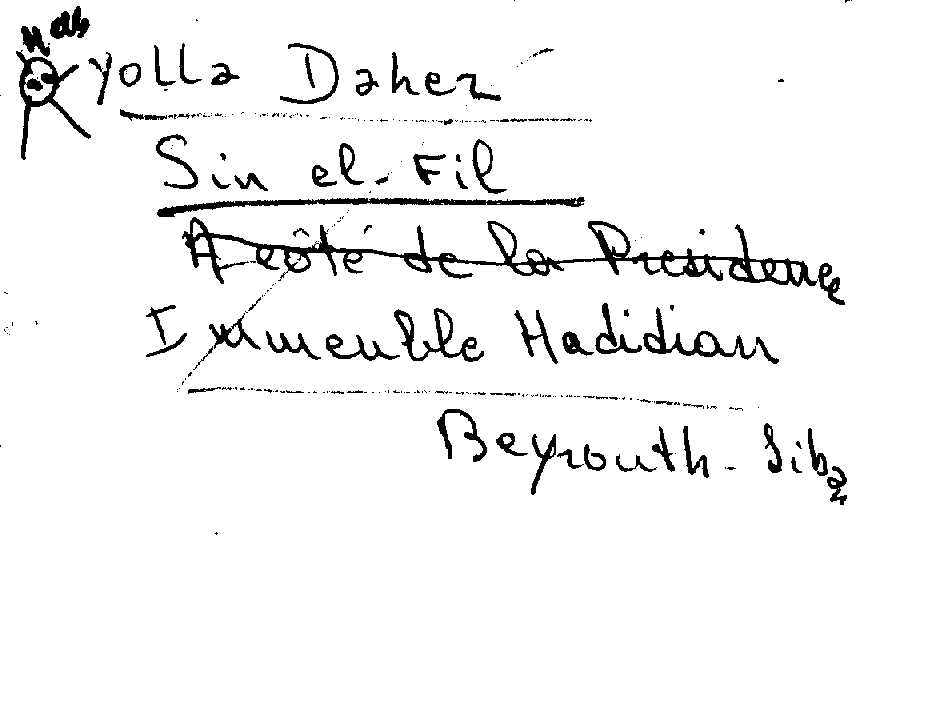 Yolla Daher
Sin el-Fil
A côté de la Presidence
Immeuble Hadidian
Beyrouth - Liba